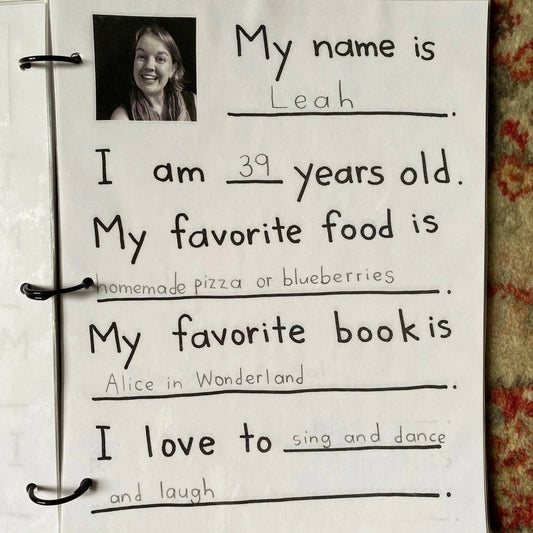 My name is
Leah.
I am 39 years old.
My favorite food is
homemade pizza or blueberries.
My favorite book is
Alice in Wonderland.
I love to sing and dance
and laugh.